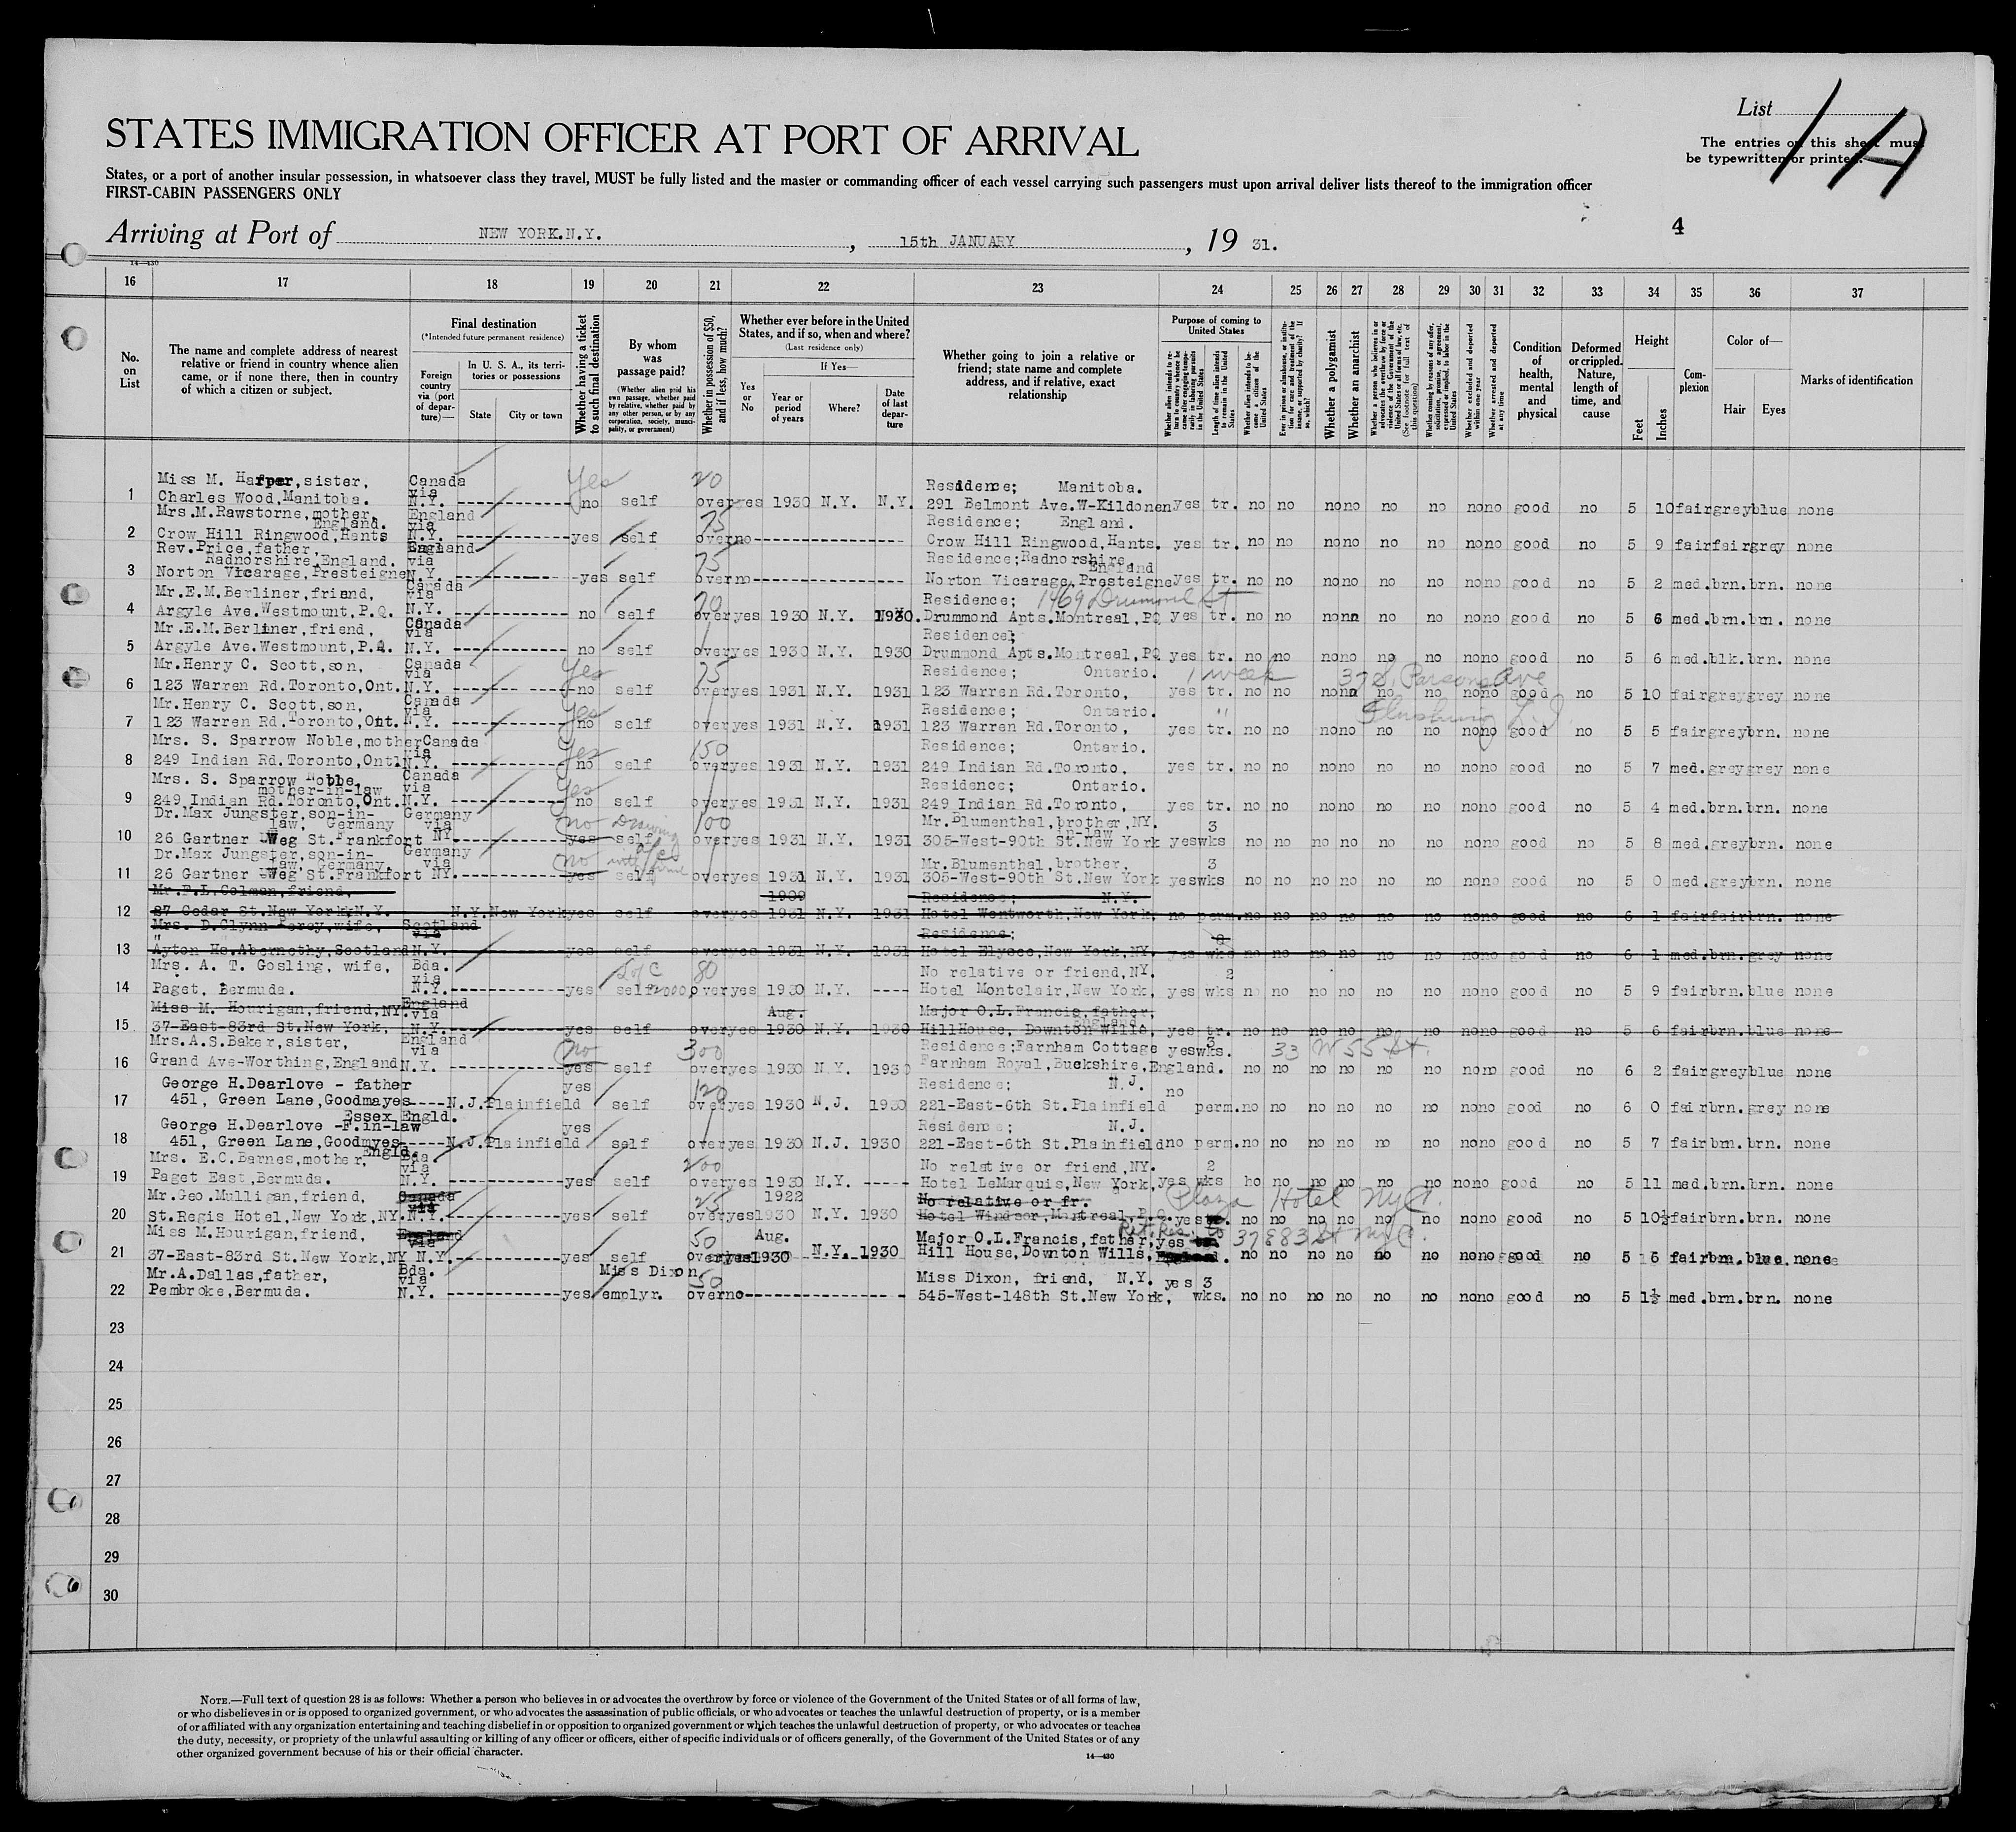 List 1 A
STATES IMMIGRATION OFFICER AT PORT OF ARRIVAL
The entries on this sheet must
be typewritten or printed.
States, or a port of another insular possession, in whatsoever class they travel, MUST be fully listed and the master or commanding officer of each vessel carrying such passengers must upon arrival deliver lists thereof to the immigration officer
FIRST-CABIN PASSENGERS ONLY
4
Arriving at Port of NEW YORK.N.Y. , 15th JANUARY , 19 31.
14—430
16 17 18 19 20 21 22 23 24 25 26 27 28 29 30 31 32 33 34 35 36 37
No. on List
The name and complete address of nearest relative or friend in country whence alien came, or if none there, then in country of which a citizen or subject.
Final destination
(*Intended future permanent residence)
Foreign country via (port of departure)—
In U. S. A., its territories or possessions
State
City or town
Whether having a ticket to such final destination
By whom was passage paid?
(Whether alien paid his own passage, whether paid by relative, whether paid by any other person, or by any corporation, society, municipality, or government)
Whether in possession of $50, and if less, how much?
Whether ever before in the United States, and if so, when and where?
(Last residence only)
Yes or No
If Yes—
Year or period of years
Where?
Date of last departure
Whether going to join a relative or friend; state name and complete address, and if relative, exact relationship
Purpose of coming to United States
Length of time alien intends to remain in the United States
Whether alien intends to become a citizen of the United States
Whether a polygamist
Whether an anarchist
Whether excluded and deported within one year
Whether arrested and deported at any time
Condition of health, mental and physical
Deformed or crippled. Nature, length of time, and cause
Height
Feet
Inches
Complexion
Color of—
Hair
Eyes
Marks of identification
Miss M. Harper,sister, Canada via Yes 20 Residence; Manitoba.
1 Charles Wood,Manitoba. N.Y. no self over yes 1930 N.Y. N.Y. 291 Belmont Ave.W-Kildonen yes tr. no no no no no no no no good no 5 10 fair grey blue none
Mrs.M.Rawstorne,mother, England. England via 75 Residence; England.
2 Crow Hill Ringwood,Hants N.Y. yes self over no Crow Hill Ringwood,Hants. yes tr. no no no no no no no no good no 5 9 fair fair grey none
Rev.Price,father, Radnorshire,England. England via 75 Residence;Radnorshire, England
3 Norton Vicarage,Presteigne N.Y. yes self over no Norton Vicarage,Presteigne yes tr. no no no no no no no no good no 5 2 med. brn. brn. none
Mr.E.M.Berliner,friend, Canada via 70 Residence; 1469 Drummond St
4 Argyle Ave.Westmount,P.Q. N.Y. no self over yes 1930 N.Y. 1930. Drummond Apts.Montreal,PQ yes tr. no no no no no no no no good no 5 6 med. brn. brn. none
Mr.E.M.Berliner,friend, Canada via Residence;
5 Argyle Ave.Westmount,P.Q. N.Y. no self over yes 1930 N.Y. 1930 Drummond Apts.Montreal,PQ yes tr. no no no no no no no no good no 5 6 med. blk. brn. none
Mr.Henry C. Scott,son, Canada via Yes 75 Residence; Ontario. 1 week 37 S. Parsons Ave
6 123 Warren Rd.Toronto,Ont. N.Y. no self over yes 1931 N.Y. 1931 123 Warren Rd.Toronto, yes tr. no no no no no no no no good no 5 10 fair grey grey none
Mr.Henry C. Scott,son, Canada via Yes Residence; Ontario. " Flushing L.I.
7 123 Warren Rd.Toronto,Ont. N.Y. no self over yes 1931 N.Y. 1931 123 Warren Rd.Toronto, yes tr. no no no no no no no no good no 5 5 fair grey brn. none
Mrs. S. Sparrow Noble,mother Canada via Yes 150 Residence; Ontario.
8 249 Indian Rd.Toronto,Ont N.Y. no self over yes 1931 N.Y. 1931 249 Indian Rd.Toronto, yes tr. no no no no no no no no good no 5 7 med. grey grey none
Mrs. S. Sparrow Noble, mother-in-law Canada via Yes Residence; Ontario.
9 249 Indian Rd.Toronto,Ont. N.Y. no self over yes 1931 N.Y. 1931 249 Indian Rd.Toronto, yes tr. no no no no no no no no good no 5 4 med. brn. brn. none
Dr.Max Jungster,son-in-law, Germany Germany via no 100 Mr.Blumenthal,brother,NY. in-law 3
10 26 Gartner Weg St.Frankfort NY. yes self over yes 1931 N.Y. 1931 305-West-90th St.New York yes wks no no no no no no no no good no 5 8 med. grey brn. none
Dr.Max Jungster,son-in-law, Germany Germany via no Mr.Blumenthal,brother, 3
11 26 Gartner Weg St.Frankfort NY. yes self over yes 1931 N.Y. 1931 305-West-90th St.New York yes wks no no no no no no no no good no 5 0 med. grey brn. none
Mr.F.L.Colman,friend, 1909 Residence; N.Y.
12 87 Cedar St.New York,N.Y. N.Y. New York yes self over yes 1931 N.Y. 1931 Hotel Wentworth,New York, no perm. no no no no no no no no good no 6 1 fair fair brn. none
Mrs. D.Glynn Percy,wife, Scotland via Residence;
13 Ayton Hs.Abernethy,Scotland N.Y. yes self over yes 1931 N.Y. 1931 Hotel Elysee,New York,NY. yes wks no no no no no no no no good no 6 1 med. brn. grey none
Mrs. A. T. Gosling, wife, Bda. via L of C 80 No relative or friend,NY. 2
14 Paget, Bermuda. N.Y. yes self 2000 over yes 1930 N.Y. ---- Hotel Montclair,New York, yes wks no no no no no no no no good no 5 9 fair brn. blue none
Miss M. Hourigan,friend,NY. England via Aug. Major O.L.Francis,father, England
15 37-East-83rd St.New York, N.Y. yes self over yes 1930 N.Y. 1930 HillHouse, Downton Wills, yes tr. no no no no no no no no good no 5 6 fair brn. blue none
Mrs.A.S.Baker,sister, England via no 300 Residence;Farnham Cottage yes 3 wks. 33 W 55 St.
16 Grand Ave-Worthing,England N.Y. yes self over yes 1930 N.Y. 1930 Farnham Royal,Buckshire,England. no no no no no no no no good no 6 2 fair grey blue none
George H.Dearlove - father yes 120 Residence; N.J. no
17 451, Green Lane,Goodmayes Essex Engld. N.J. Plainfield self over yes 1930 N.J. 1930 221-East-6th St.Plainfield perm. no no no no no no no no good no 6 0 fair brn. grey none
George H.Dearlove -F.in-law yes Residence; N.J.
18 451, Green Lane,Goodmyes Engld. N.J. Plainfield self over yes 1930 N.J. 1930 221-East-6th St.Plainfield no perm. no no no no no no no no good no 5 7 fair brn. brn. none
Mrs. E.C.Barnes,mother, Bda. via 200 No relative or friend,NY. 2
19 Paget East,Bermuda. N.Y. yes self over yes 1930 N.Y. ----- Hotel LeMarquis,New York, yes wks no no no no no no no no good no 5 11 med. brn. brn. none
Mr.Geo.Mulligan,friend, Canada via 25 1922 No relative or fr. Plaza Hotel NYC.
20 St.Regis Hotel,New York,NY. N.Y. yes self over yes 1930 N.Y. 1930 Hotel Windsor,Montreal,P.Q. yes tr. no no no no no no no no good no 5 10½ fair brn. brn. none
Miss M.Hourigan,friend, England via 50 Aug. Major O.L.Francis,father, yes 37 E 83 St NYC.
21 37-East-83rd St.New York,NY N.Y. yes self over yes 1930 N.Y. 1930 Hill House,Downton Wills, no no no no no no no no good no 5 6 fair brn. blue none
Mr.A.Dallas,father, Bda. via Miss Dixon 50 Miss Dixon, friend, N.Y. yes 3
22 Pembroke,Bermuda. N.Y. yes emplyr. over no 545-West-148th St.New York, wks. no no no no no no no no good no 5 1½ med. brn. brn. none
23
24
25
26
27
28
29
30
NOTE.—Full text of question 28 is as follows: Whether a person who believes in or advocates the overthrow by force or violence of the Government of the United States or of all forms of law,
or who disbelieves in or is opposed to organized government, or who advocates the assassination of public officials, or who advocates or teaches the unlawful destruction of property, or is a member
of or affiliated with any organization entertaining and teaching disbelief in or opposition to organized government or which teaches the unlawful destruction of property, or who advocates or teaches
the duty, necessity, or propriety of the unlawful assaulting or killing of any officer or officers, either of specific individuals or of officers generally, of the Government of the United States or of any
other organized government because of his or their official character.
14—430